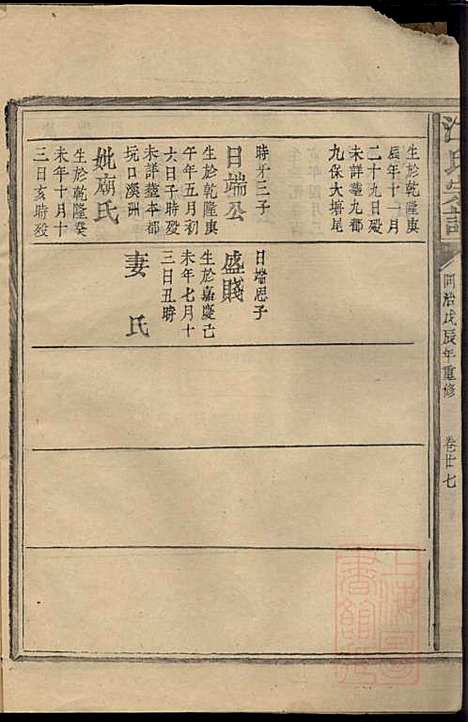 氏宗譜
同治戊辰年重修
卷廿七
生於乾隆庚
辰年十一月
二十九日殁
未詳塟九都
九保大塘尾
時才三子
日端公
生於乾隆庚
午年五月初
六日子時殁
未詳塟本都
坑口溪洲
妣庙氏
生於乾隆癸
未年十月十
三日亥時殁
日端恩子
盛賤
生於嘉慶己
未年七月十
三日丑時
妻氏
上海圖書館藏